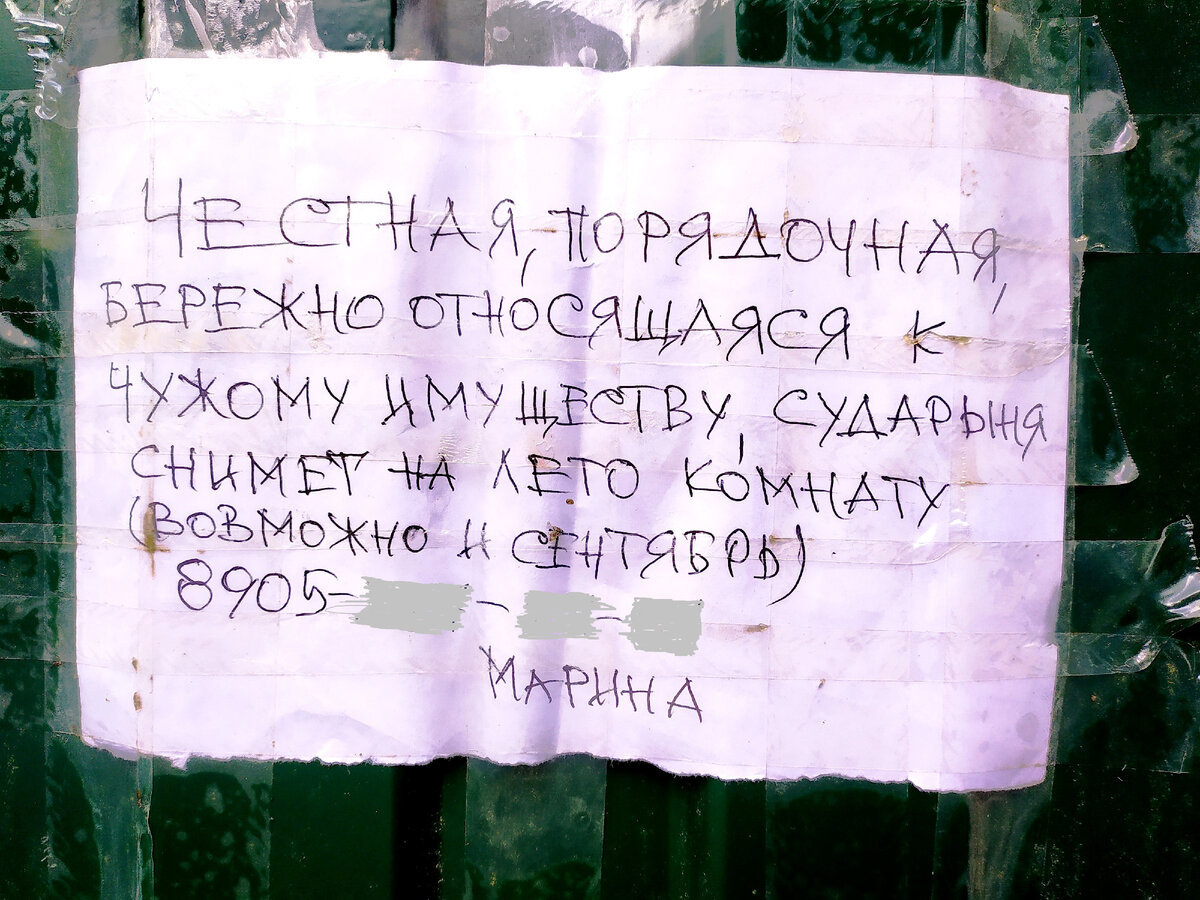 ЧЕСТНАЯ, ПОРЯДОЧНАЯ,
БЕРЕЖНО ОТНОСЯЩАЯСЯ К
ЧУЖОМУ ИМУЩЕСТВУ, СУДАРЫНЯ
СНИМЕТ НА ЛЕТО КОМНАТУ
(ВОВМОЖНО И СЕНТЯБРЬ)
8905- - -
МАРИНА